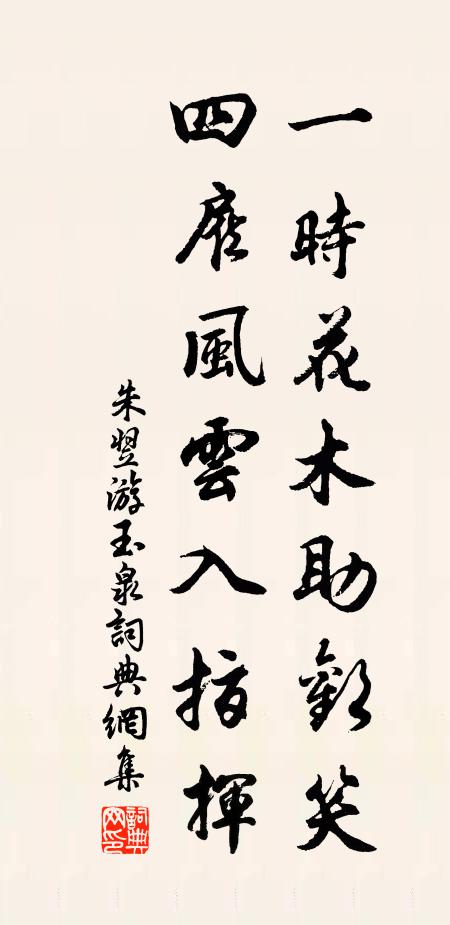 一時花木助歡笑
四扆風雲入指揮
朱翌游玉泉詞典網集
詞典網印